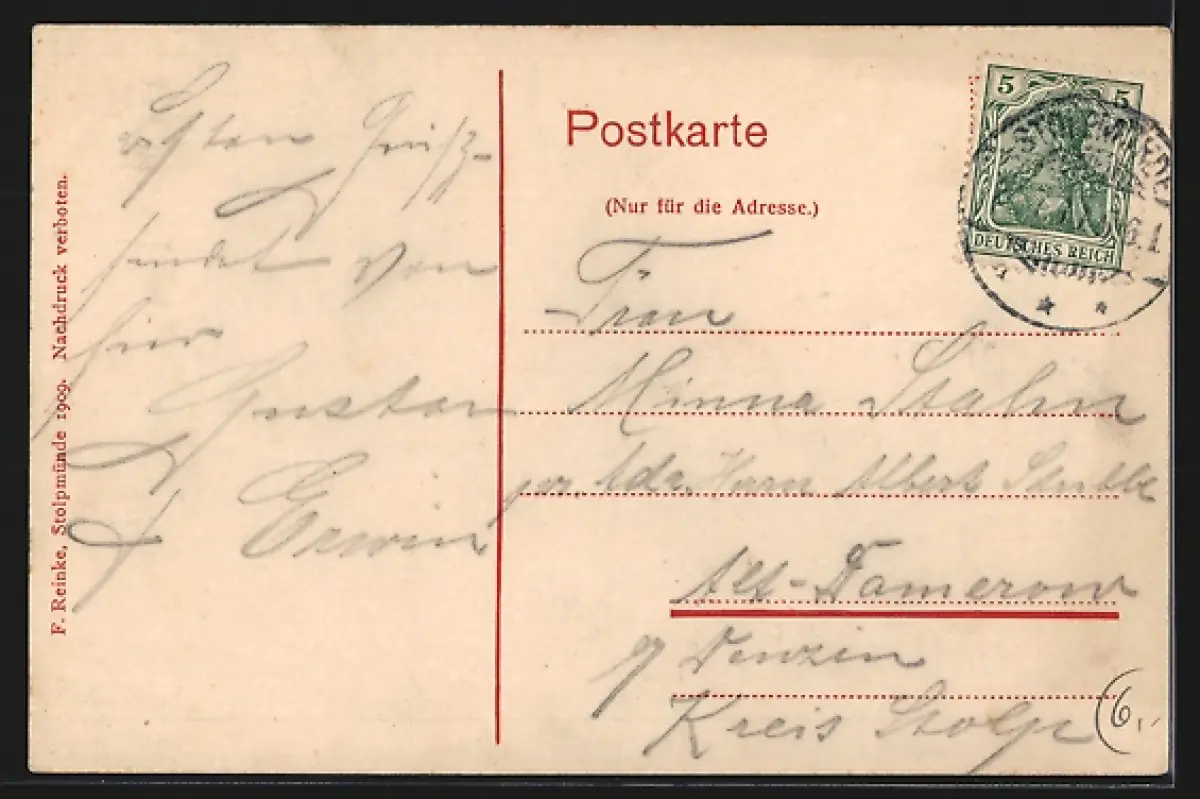 F. Reinke, Stolpmünde 1909. Nachdruck verboten.
Besten Gruß
sendet von
hier
Gustav
Erwin
Postkarte
(Nur für die Adresse.)
5 5
DEUTSCHES REICH
STOLPMÜNDE
Frau
Minna Stahn
Adr. Herrn Albert
Alt-Damerow
Denzin
Kreis Stolp
(6,-